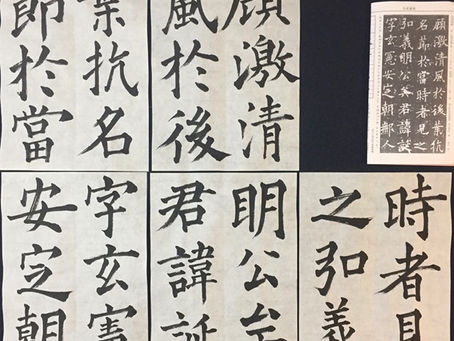 顧激清
風於後
葉抗名
節於當
時者見
之弘義
明公矣
君諱誕
字玄憲
安定朝
顧激清風於後葉抗
名節於當時者見之
弘義明公矣君諱誕
字玄憲安定朝那人